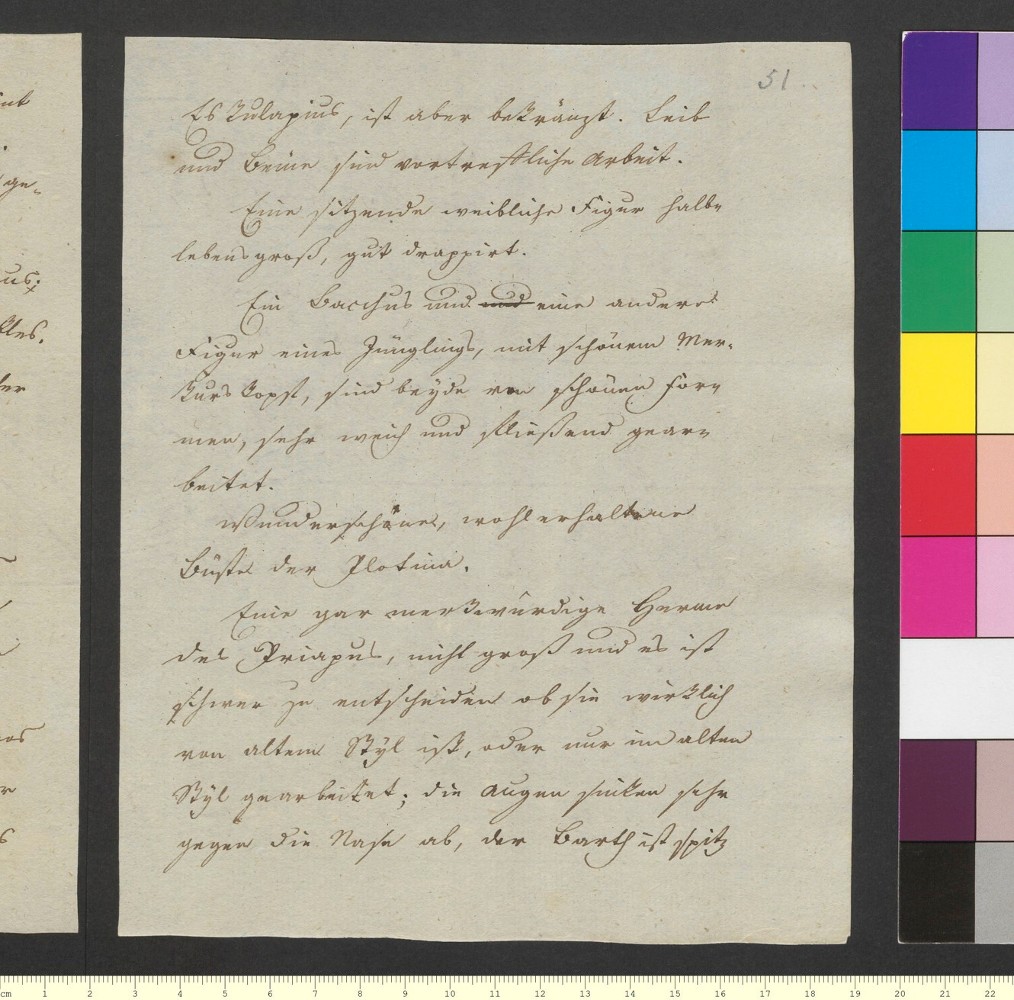 51.
Eskulapius, ist aber bekränzt. Leib
und Beine sind vortreffliche Arbeit.
Eine sitzende weibliche Figur halb-
lebensgroß, gut drappirt.
Ein Bacchus und und eine andere
Figur eines Jünglings, mit schönem Mer-
kurs kopf, sind beyde von schönen For-
men, sehr weich und fließend gear-
beitet.
Wunderschöne, wohlerhaltene
Büste der Plotina.
Eine gar merkwürdige Herme
des Priapus, nicht groß und es ist
schwer zu entscheiden ob sie wirklich
von altem Styl ist, oder nur im alten
Styl gearbeitet; die Augen sinken sehr
gegen die Nase ab, der Barth ist spitz